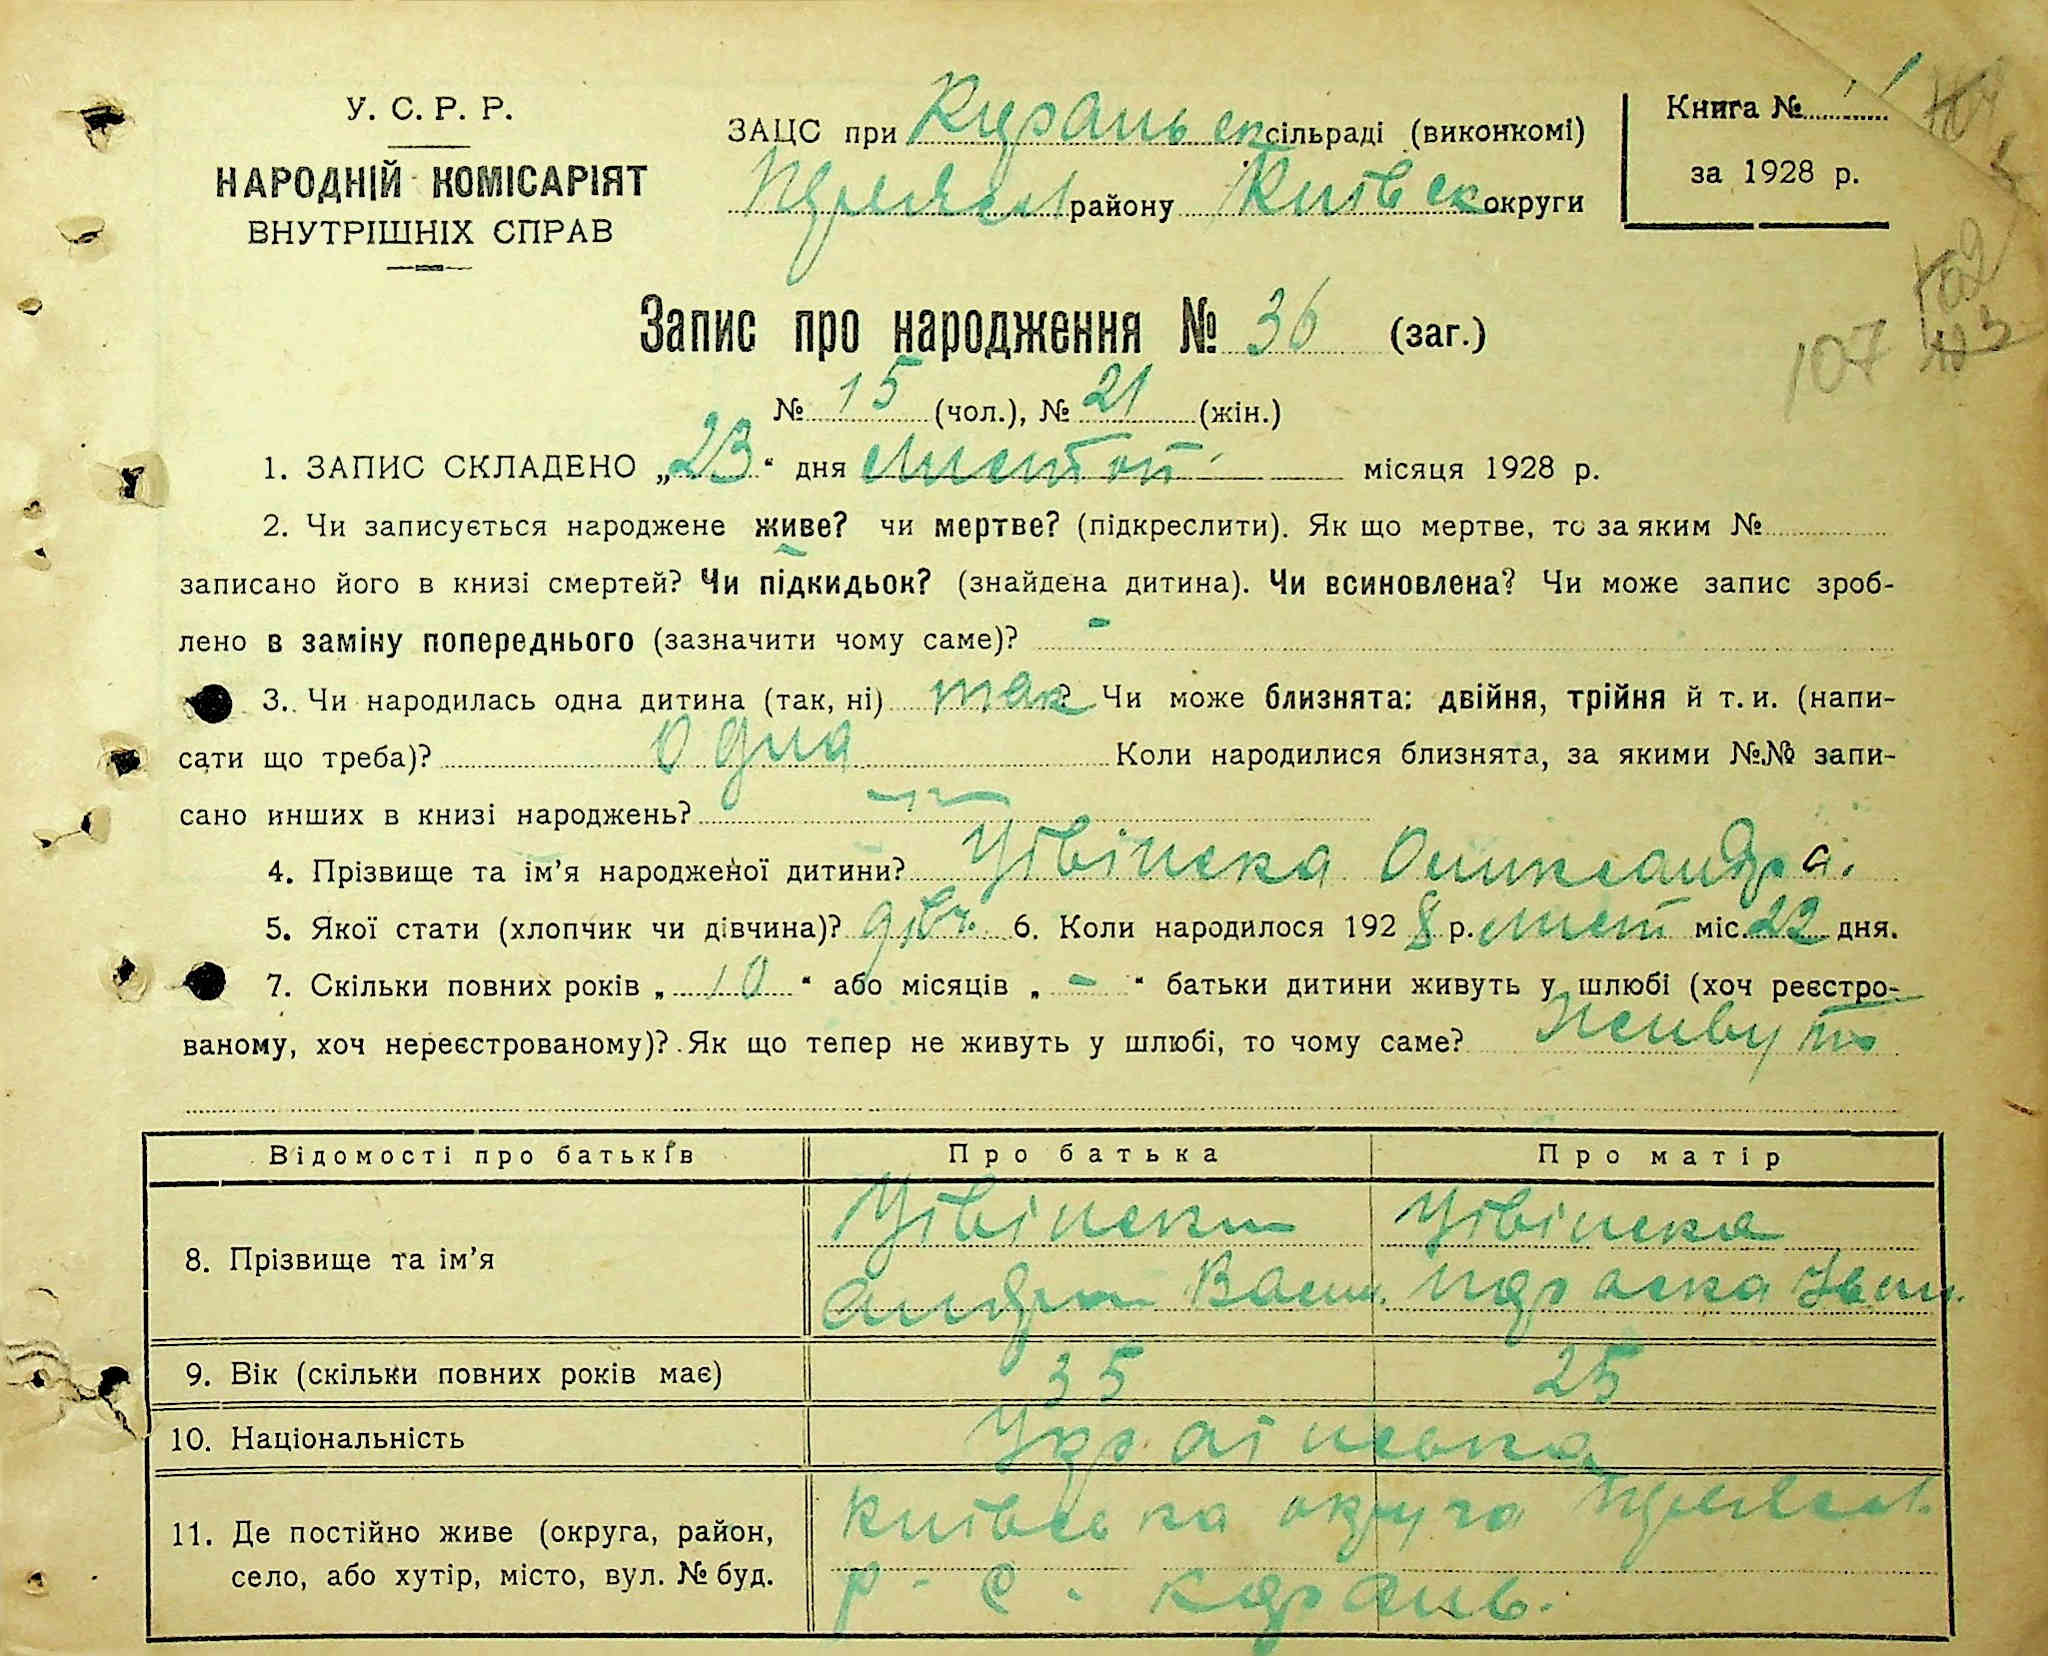 У. С. Р. Р.
НАРОДНІЙ КОМІСАРІЯТ
ВНУТРІШНІХ СПРАВ
ЗАЦС при Карань ск сільраді (виконкомі)
Переясл району Київ ск округи
Книга №
за 1928 р.
Запис про народження № 36 (заг.)
107
№ 15 (чол.), № 21 (жін.)
1. ЗАПИС СКЛАДЕНО „23“ дня листоп. місяця 1928 р.
2. Чи записується народжене живе? чи мертве? (підкреслити). Як що мертве, то за яким №
записано його в книзі смертей? Чи підкидьок? (знайдена дитина). Чи всиновлена? Чи може запис зроб-
лено в заміну попереднього (зазначити чому саме)? -
3. Чи народилась одна дитина (так, ні) так? Чи може близнята: двійня, трійня й т. и. (напи-
сати що треба)? Одна Коли народилися близнята, за якими №№ запи-
сано инших в книзі народжень?
4. Прізвище та ім'я народженої дитини? Олександра.
5. Якої стати (хлопчик чи дівчина)? дівч. 6. Коли народилося 1928 р. лист міс. 22 дня.
7. Скільки повних років „10“ або місяців „-“ батьки дитини живуть у шлюбі (хоч реєстро-
ваному, хоч нереєстрованому)? Як що тепер не живуть у шлюбі, то чому саме? Живуть
Відомості про батьків Про батька Про матір
8. Прізвище та ім'я
Андрій Васил. Параска Іван.
9. Вік (скільки повних років має) 35 25
10. Національність Українська
11. Де постійно живе (округа, район,
село, або хутір, місто, вул. № буд.
Київська округа Переясл.
р. с. Карань.